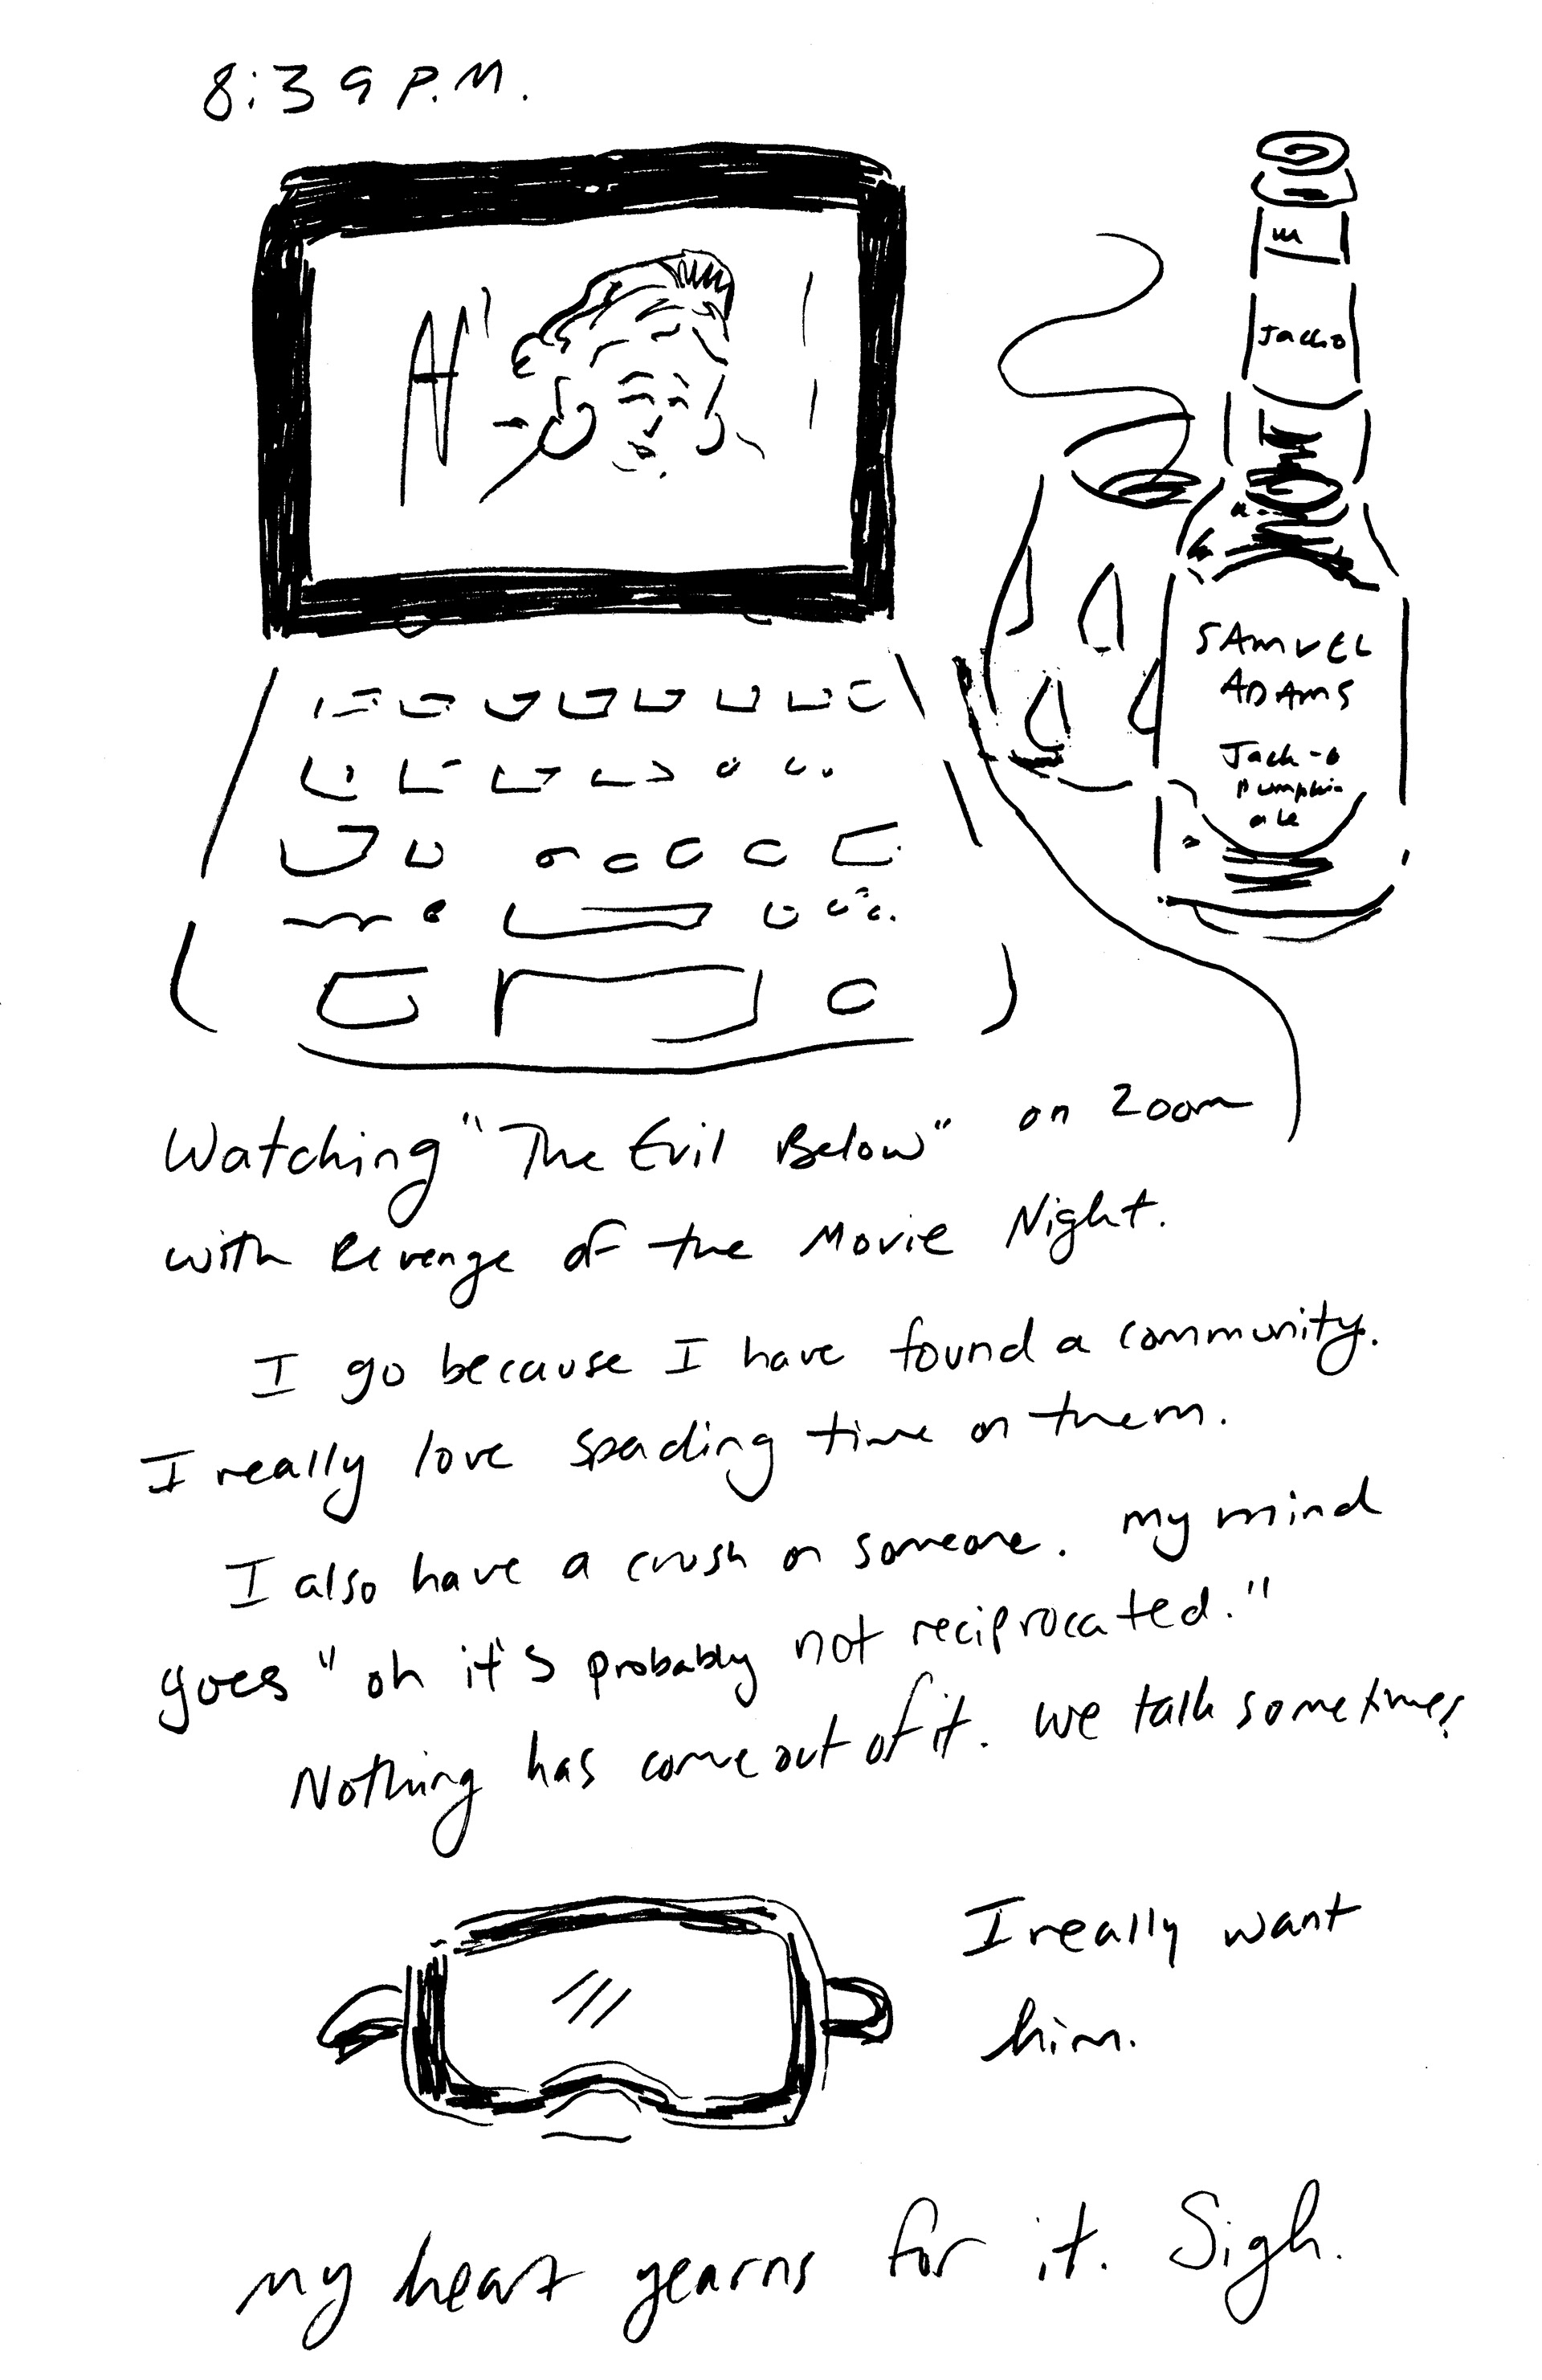 8:39 P.M.
Jack o
SAMUEL
ADAMS
Jack-o
Pumpkin
ale
Watching "The Evil Below" on Zoom
with Revenge of the Movie Night.
I go because I have found a community.
I really love spending time on them.
I also have a crush on someone. My mind
goes "oh it's probably not reciprocated."
Nothing has come out of it. We talk sometimes
I really want
him.
My heart yearns for it. Sigh.